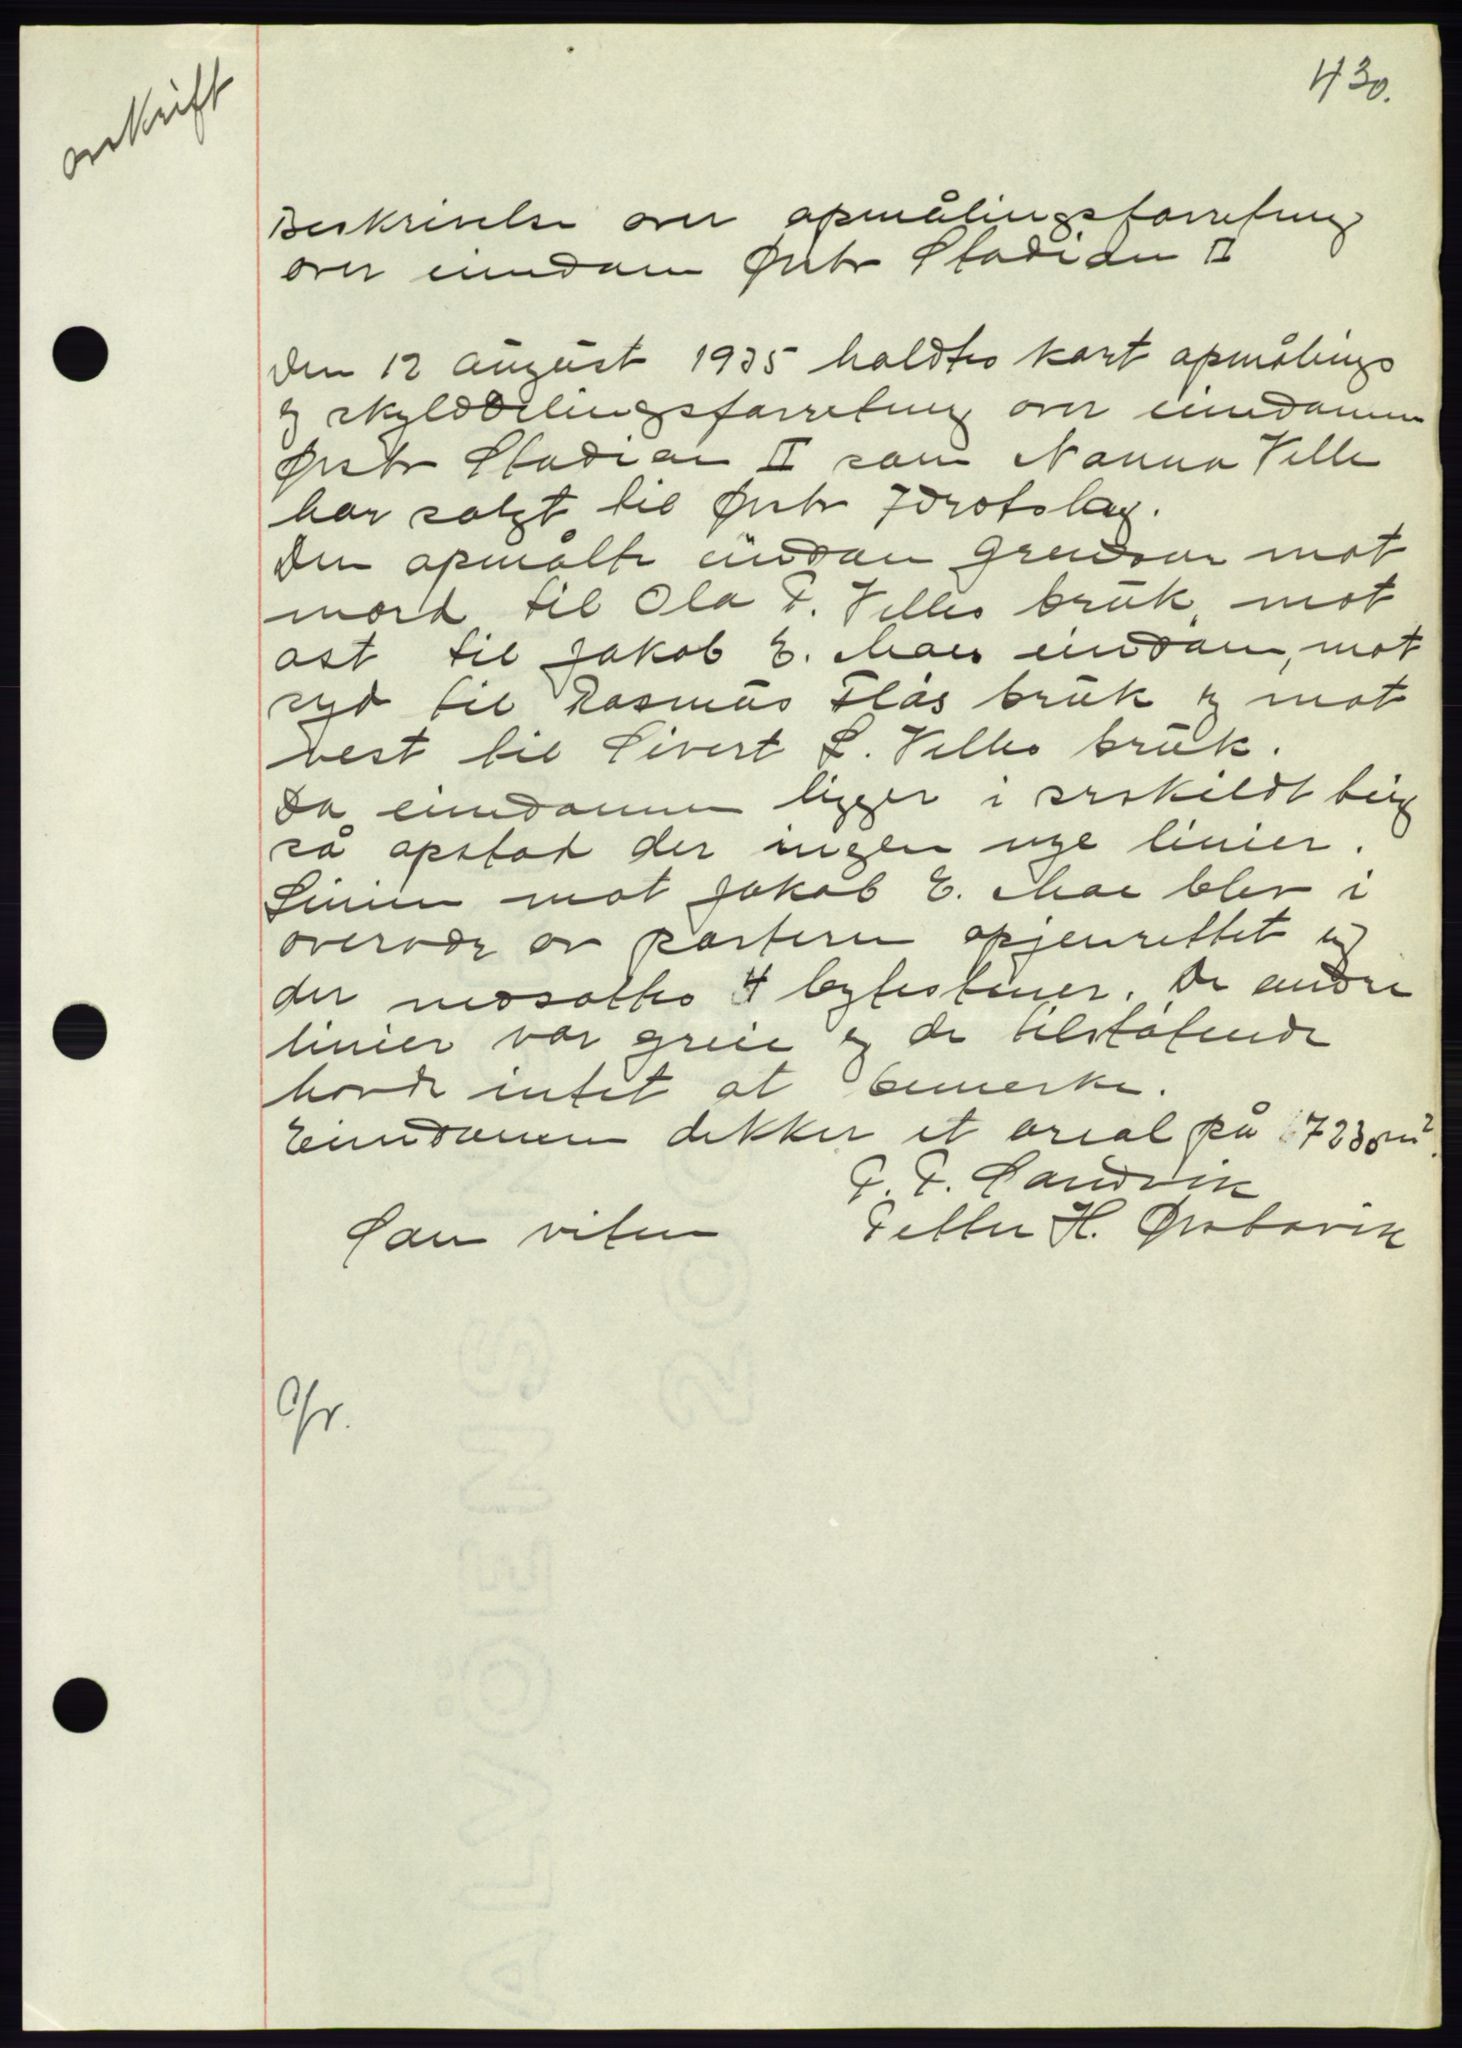 430.
avskrift
Beskrivelse over opmålingsforretning
over eiendom Ørsta Stadion II
Den 12 august 1935 holdtes kart opmålings
og skylddelingsforretning over eiendommen
Ørsta Stadion II som Nanna Velle
har solgt til Ørsta Idrotslag.
Den opmålte eiendom grenser mot
nord til Ola P. Velles bruk, mot
ost til Jakob E. Moes eiendom, mot
syd til Rasmus Flås bruk og mot
vest til Sivert L. Velles bruk.
Da eiendommen ligger i særskildt
så opstod der ingen nye linier.
Linien mot Jakob E. Moe blev i
overvær av partene opjenrettet og
der nedsattes 4 bytesteiner. De andre
linier var greie og de tilstøtende
havde intet at bemerke.
Eiendommen dekker et areal på 7230m².
P. P. Sandvik
Som viten Petter H. Ørstavik